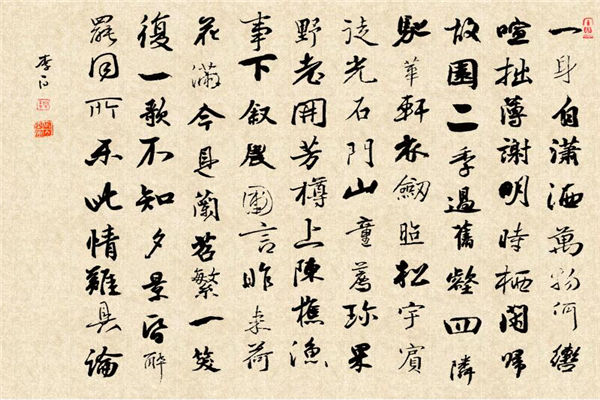 一身自瀟洒萬物何囂
喧拙薄謝明時栖閑歸
故園二季過舊壑四隣
馳華軒衣劒照松宇賓
徒光石門山童薦珍果
野老開芳樽上陳樵漁
事下叙農圃言昨來荷
花滿今見蘭苕繁一笑
復一歌不知夕景昏醉
罷同所樂此情難具論